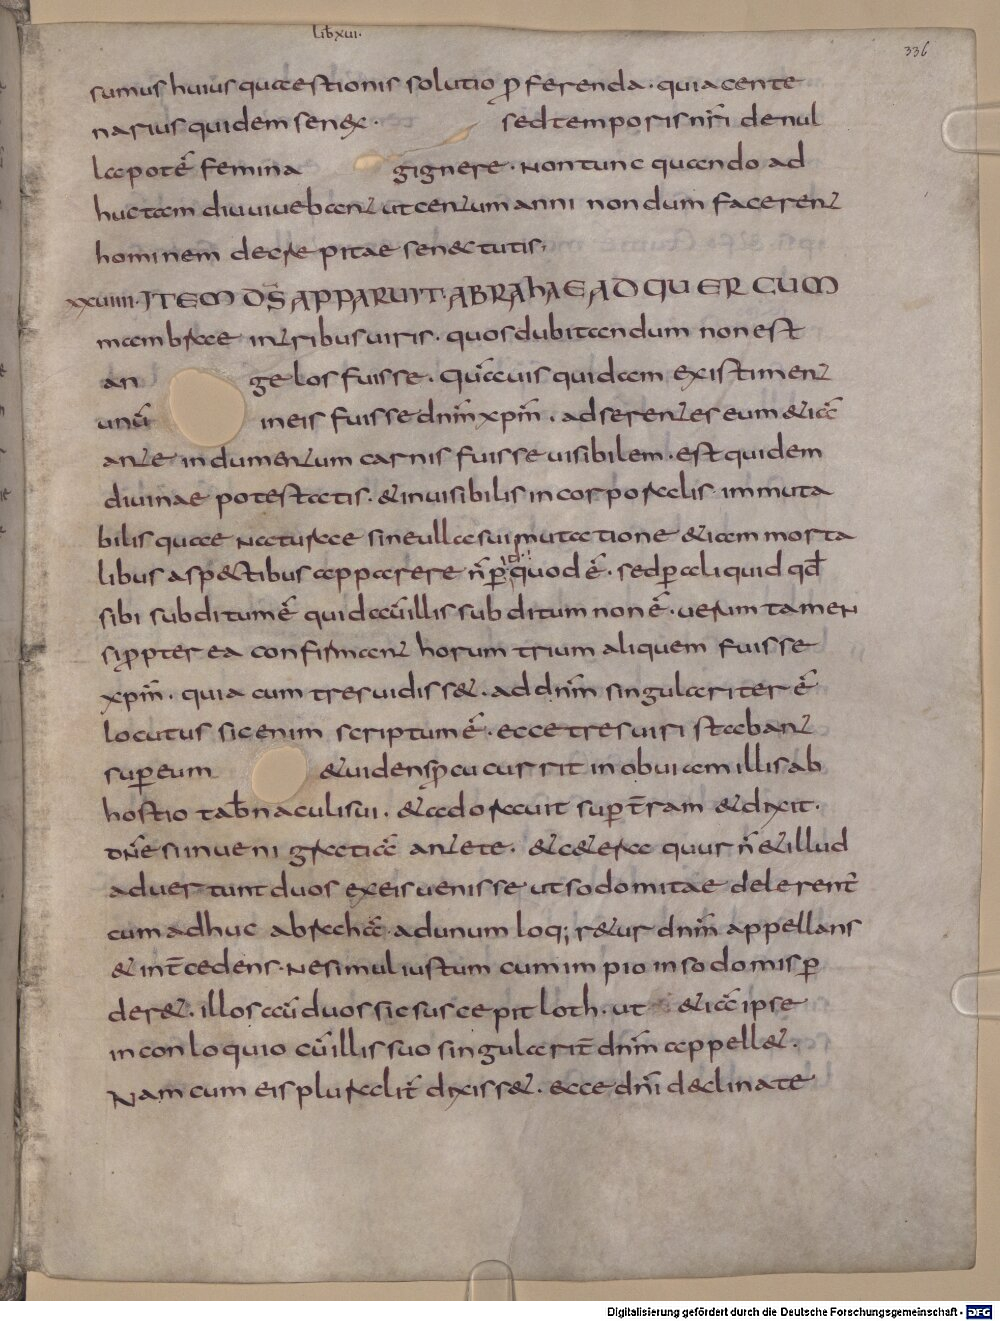 lib̄ xvi·
336
sumus huius quaestionis solutio p̱ferenda · quia cente
narius quidem senex · sed temporis nr̄i de nul
la poté femina gignere · Non tunc quando ad
huc tam diu uiuebant ut centum anni nondum facerent
hominem decrepitae senectutis·
XXVIIII· ITEM DS̄ APPARUIT· ABRAHAE AD QUERCUM
mambrae in tribus uiris · quos dubitandum non est
an gelos fuisse · Quāuis quidam existiment
unū in eis fuisse dnm̄ xpm̄ · adserentes eum &iā
ante indumentum carnis fuisse uisibilem · est quidem
diuinae potestatis · & inuisibilis incorporalis immuta
bilis quae naturae sine ulla sui mutatione &iam morta
libus aspectibus apparere n̄ ꝑ id quod ē · sed ꝑ aliquid qd̄
sibi subditum ē quid aū illis subditum non ē · uerum tamen
si ꝓpterea confirmant horum trium aliquem fuisse
xpm̄ · quia cum tres uidiss& · ad dnm̄ singulariter ē
locutus sic enim scriptum ē · ecce tres uiri stabant
suꝑ eum & uidens ꝓcucurrit in obuiam illis ab
hostio tab̄naculi sui · & adorauit suꝑ t̄ram & dixit ·
dn̄e si inueni gratiā ante te · & c&era quur n̄ & illud
aduertunt duos ex eis uenisse ut sodomitae delerent̄
cum adhuc abrahā ad unum loq; r&ur dnm̄ appellans
& int̄cedens · Ne simul iustum cum impio in sodomis ꝑ
der& · illos aū duos sic suscepit loth · ut &iā ipse
in conloquio cū illis suo singularit̄ dnm̄ appell& ·
Nam cum eis pluralit̄ dixiss& · ecce dnī declinate
Digitalisierung gefördert durch die Deutsche Forschungsgemeinschaft - DFG